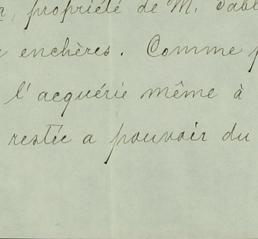 , propriété de M.
enchères. Comme
l'acquérie même à
restée a pouvoir du